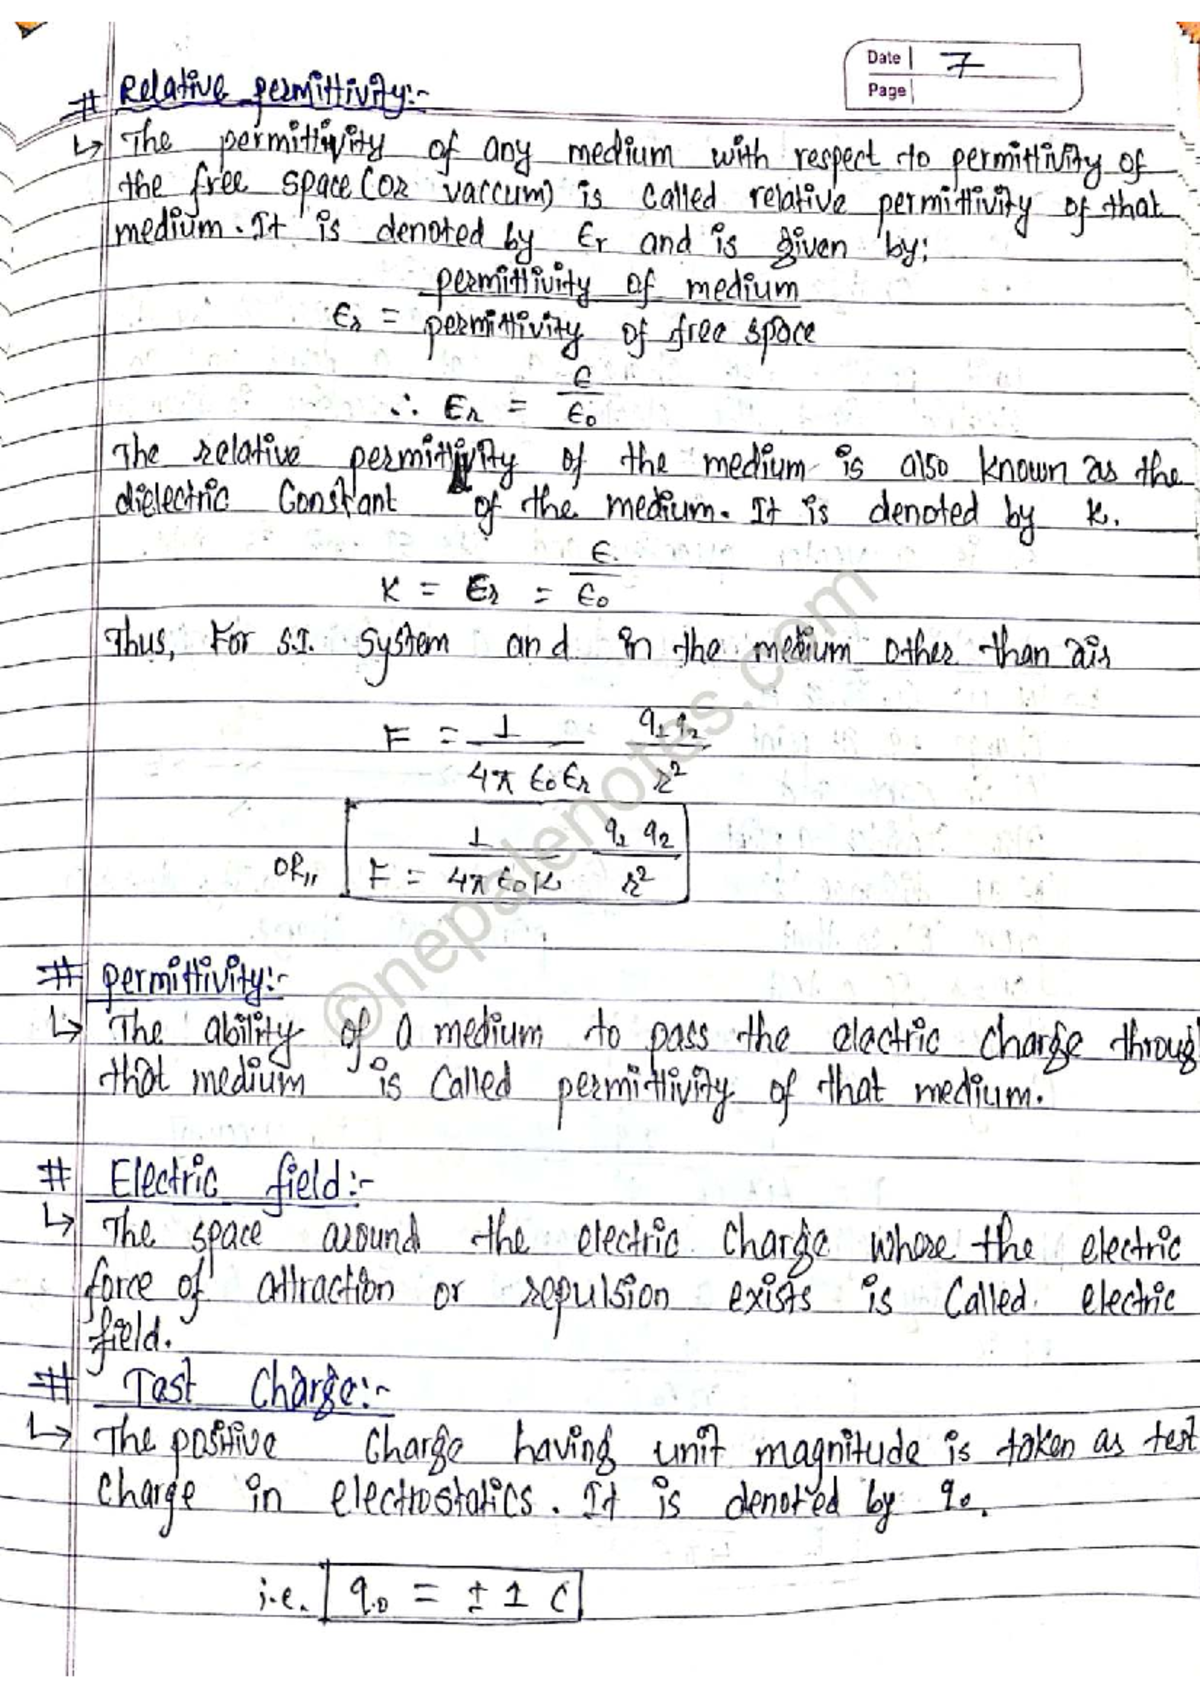 Date 7
Page
# Relative permittivity:-
↳ The permittivity of any medium with respect to permittivity of
the free space (or vaccum) is called relative permittivity of that
medium. It is denoted by Er and is given by:
Er = permittivity of medium / permittivity of free space
∴ Er = E / E0
The relative permittivity of the medium is also known as the
dielectric Constant of the medium. It is denoted by K.
K = Er = E / E0
Thus, For S.I. System and in the medium other than air
F = 1 / 4π E0Er q1q2 / r²
OR,, F = 1 / 4π E0K q1 q2 / r²
# permittivity:-
↳ The ability of a medium to pass the electric charge throug
that medium is called permittivity of that medium.
# Electric field:-
↳ The space around the electric charge where the electric
force of attraction or repulsion exists is called electric
field.
# Test Charge:-
↳ The positive charge having unit magnitude is taken as test
charge in electrostatics. It is denoted by q0.
i.e. q0 = ± 1 C
©nepalenotes.com